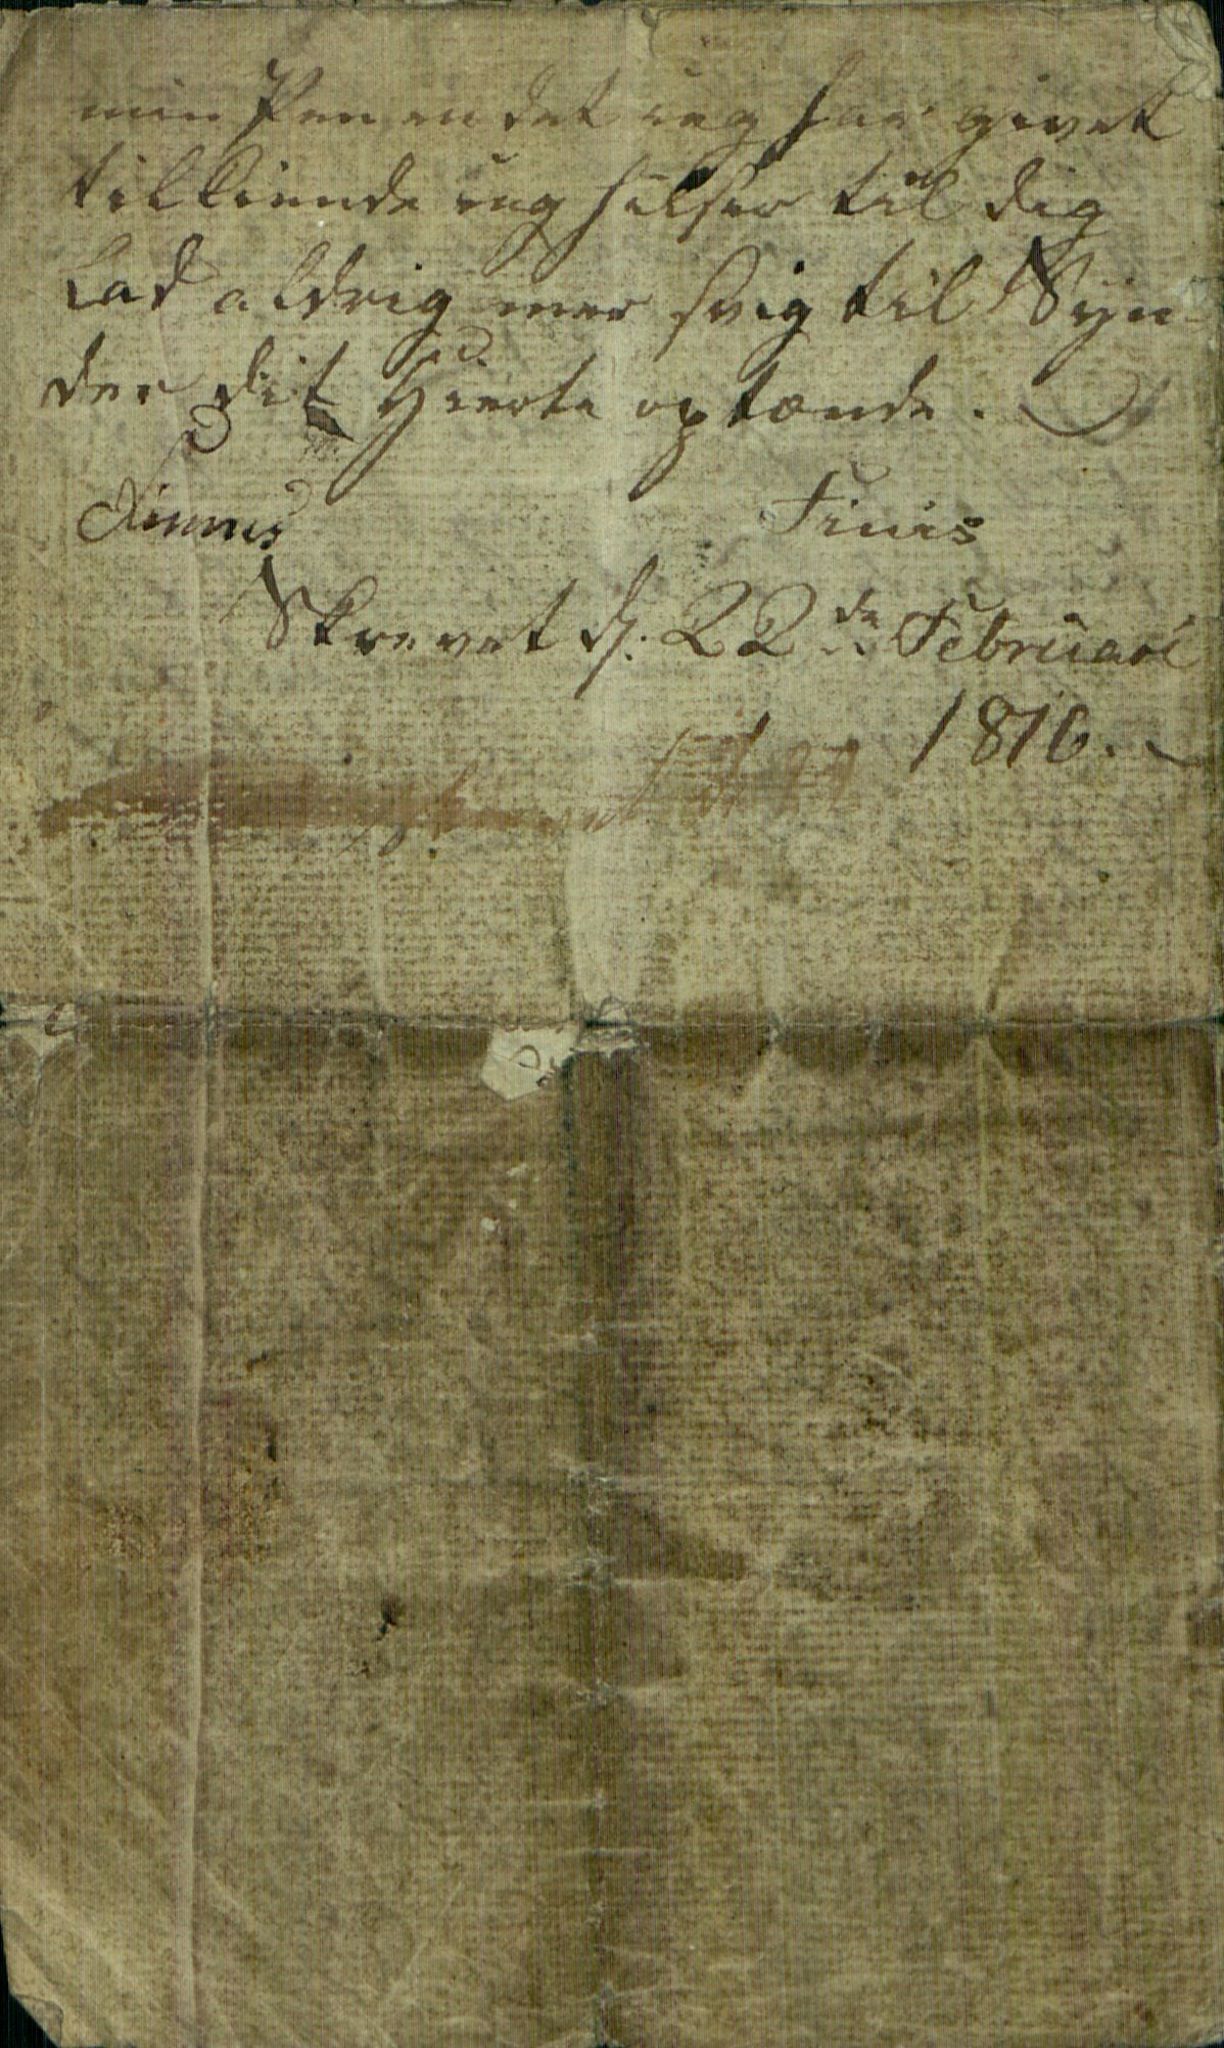 min Pen en det ieg har givet
tilkiende ieg hilser til dig
Lad aldrig mer svig til Syn-
der dit Hierte optænde.
Finis
Skrevet d. 22de Februari
1816.